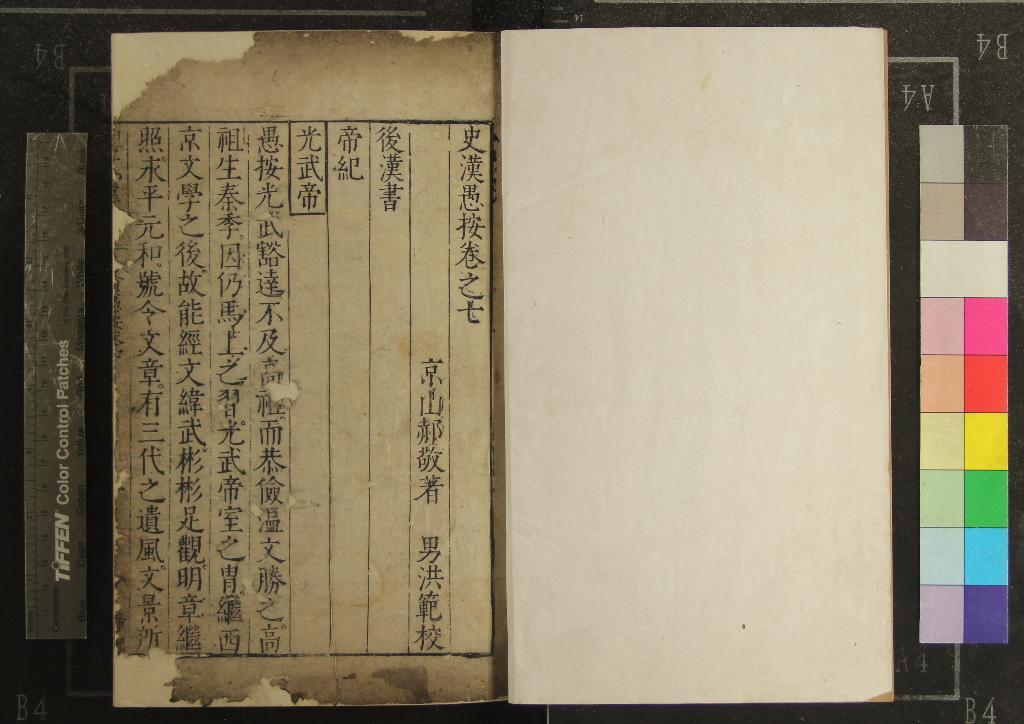 史漢愚按卷之七
京山郝敬著 男洪範校
後漢書
帝紀
光武帝
愚按光武豁達不及高祖而恭儉溫文勝之高
祖生秦季因仍馬上之習光武帝室之胄繼西
京文學之後故能經文緯武彬彬足觀明章繼
照永平元和號令文章有三代之遺風文景所
TIFFEN Color Control Patches
B4
B4
A4
A4
B4
B4